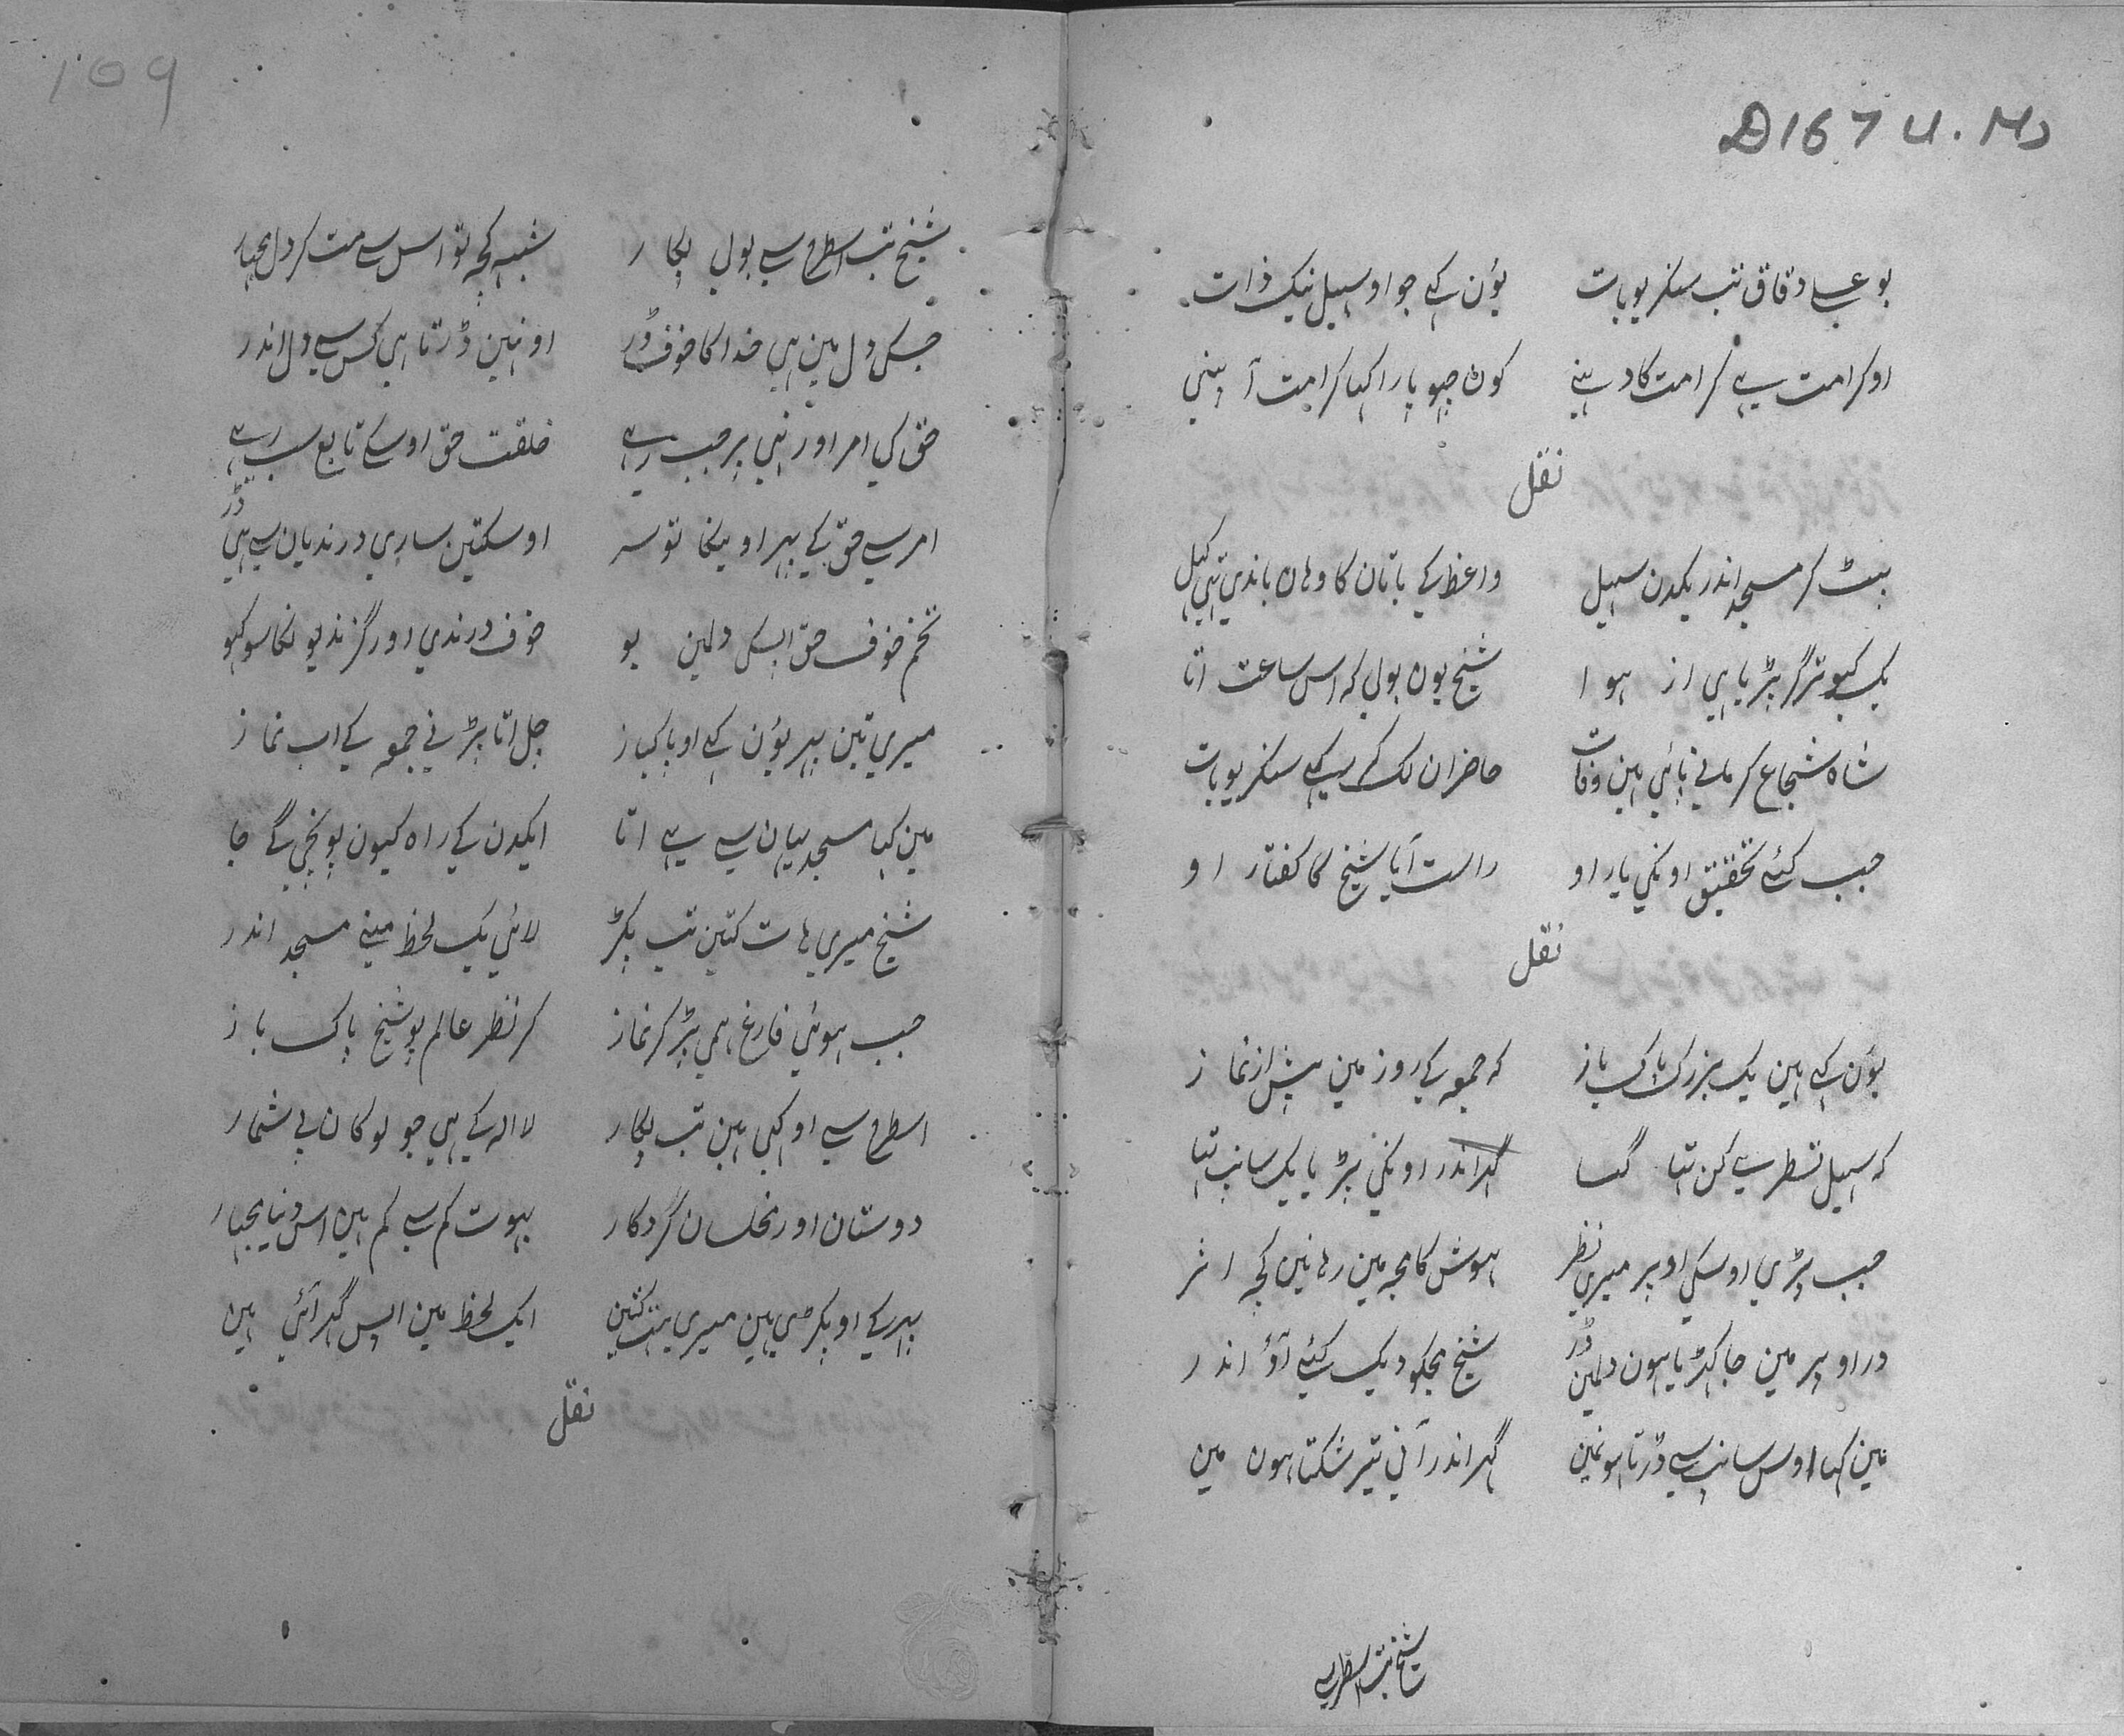 D167 U. Ms
بو علی دقاق تب سنکر یو بات یوُن کہے جو او سہیل نیک ذات
او کرامت سے کرامت کا دہنے کون جیو پارا کیا کرامت آ پنی
نقل
بیٹ کر مسجد اندر یکدن سہیل واعظ کے باتان کا وہان باندی تہی کہیل
یک کبوتر گر پڑیا ہی از ہوا شیخ یون بولے کہ اس ساعت اتا
شاہ شجاع کرمانے پائی ہین وفات حاضران لک رکہے سنکر یو بات
جب کئے تحقیق اونکی یار او راست آیا شیخ کا کفتار او
نقل
یوُن کہے ہین یک بزرک پاک باز کہ جمعہ کے روز مین پیش از نماز
کہ سہیل تستطر سے کن تہا گیا گہر اندر اونکی پڑیا یک سانپ تہا
جب پڑی اوسکی اوپر میری نظر ہوش کا مجہ مین رہا نین کچہ اثر
در اوپر مین جا کہڑیا ہون دلمین ڈر شیخ مجکو دیک کہئے آؤ اندر
مین کہا اوس سانپ سے ڈرتا ہونمین گہر اندر آنی نین شکتا ہون مین
شیخ تب اسطرح سے
109
شیخ تب اسطرح سے بولی پکار شبہہ کچہ تو اس سے مت کر دل بچہار
جسکی دل مین ہی خدا کا خوف ڈر او نہین ڈرتا ہی کس سے دل اندر
حق کی امر اور نہی پر جب رہے خلقت حق اوسکے تابع سب رہے
امر سے حق کے پہراوینکا تو سر اوسکتین ساری درندیان سے ہی ڈر
تخم خوف حق اپسکی دلمین بو خوف درندی اور گزندیو لکا سو کہو
میری تین پہر یوُن کہے او پاکباز چل اتا پڑنے جمعہ کے اب نماز
مین کہا مسجد یہان سے ہے اتا ایکدن کے راہ کیون پونچی گے جا
شیخ میری ہات کتین تب پکڑ لائی یک لحظ مینے مسجد اندر
جب ہوئی فارغ ہمی پڑ کر نماز کر نظر عالم پو شیخ پاک باز
اسطرح سے او کہی ہین تب پکار لا الہ کے ہی جو لوکان بے شمار
دوستان اور مخلسان کردکار بہوت کم سے کم ہین اس دنیا بچہار
پہر کے او پکڑی ہین میری ہت کتین ایک لحظ مین اپس گہر آئی ہین
نقل